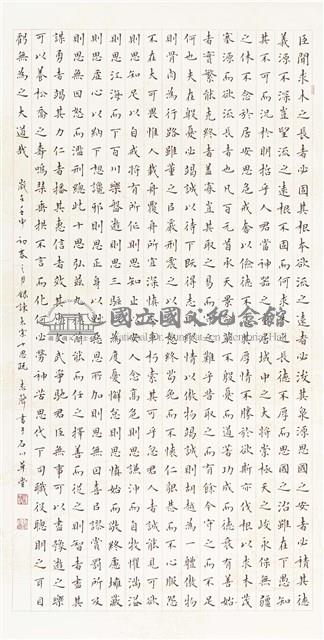 臣聞求木之長者必固其根本欲流之遠者必浚其泉源思國之安者必積其德
義源不深豈望流之遠根不固而何求木之長德不厚而思國之治雖在下愚知
其不可而況於明哲乎人君當神器之重居域中之大將崇極天之峻永保無疆
之休不念於居安思危戒貪以儉德不處其厚情不勝其欲斯亦伐根以求木茂
塞源而欲流長者也凡百元首承天景命莫不殷憂而道著功成而德衰有善始
者實繁能克終者蓋寡豈其取之易而守之難乎昔取之而有餘今守之而不足
何也夫在殷憂必竭誠以待下既得志則縱情以傲物竭誠則胡越為一體傲物
則骨肉為行路雖董之以嚴刑震之以威怒終苟免而不懷仁貌恭而不心服怨
不在大可畏惟人載舟覆舟所宜深慎奔車朽索其可忽乎君人者誠能見可欲
則思知足以自戒將有所作則思知止以安人念高危則思謙沖而自牧懼滿溢
則思江海而下百川樂盤遊則思三驅以為度憂懈怠則思慎始而敬終慮壅蔽
則思虛心以納下想讒邪則思正身以黜惡恩所加則思無因喜以謬賞罰所及
則思無因怒而濫刑總此十思弘茲九德簡能而任之擇善而從之則智者盡其
謀勇者竭其力仁者播其惠信者效其忠文武爭馳君臣無事可以盡豫遊之樂
可以養松喬之壽鳴琴垂拱不言而化何必勞神苦思代下司職役聰明之耳目
虧無為之大道哉
歲在壬申初春之月錄諫太宗十思疏 書于石川草堂
國立國父紀念館